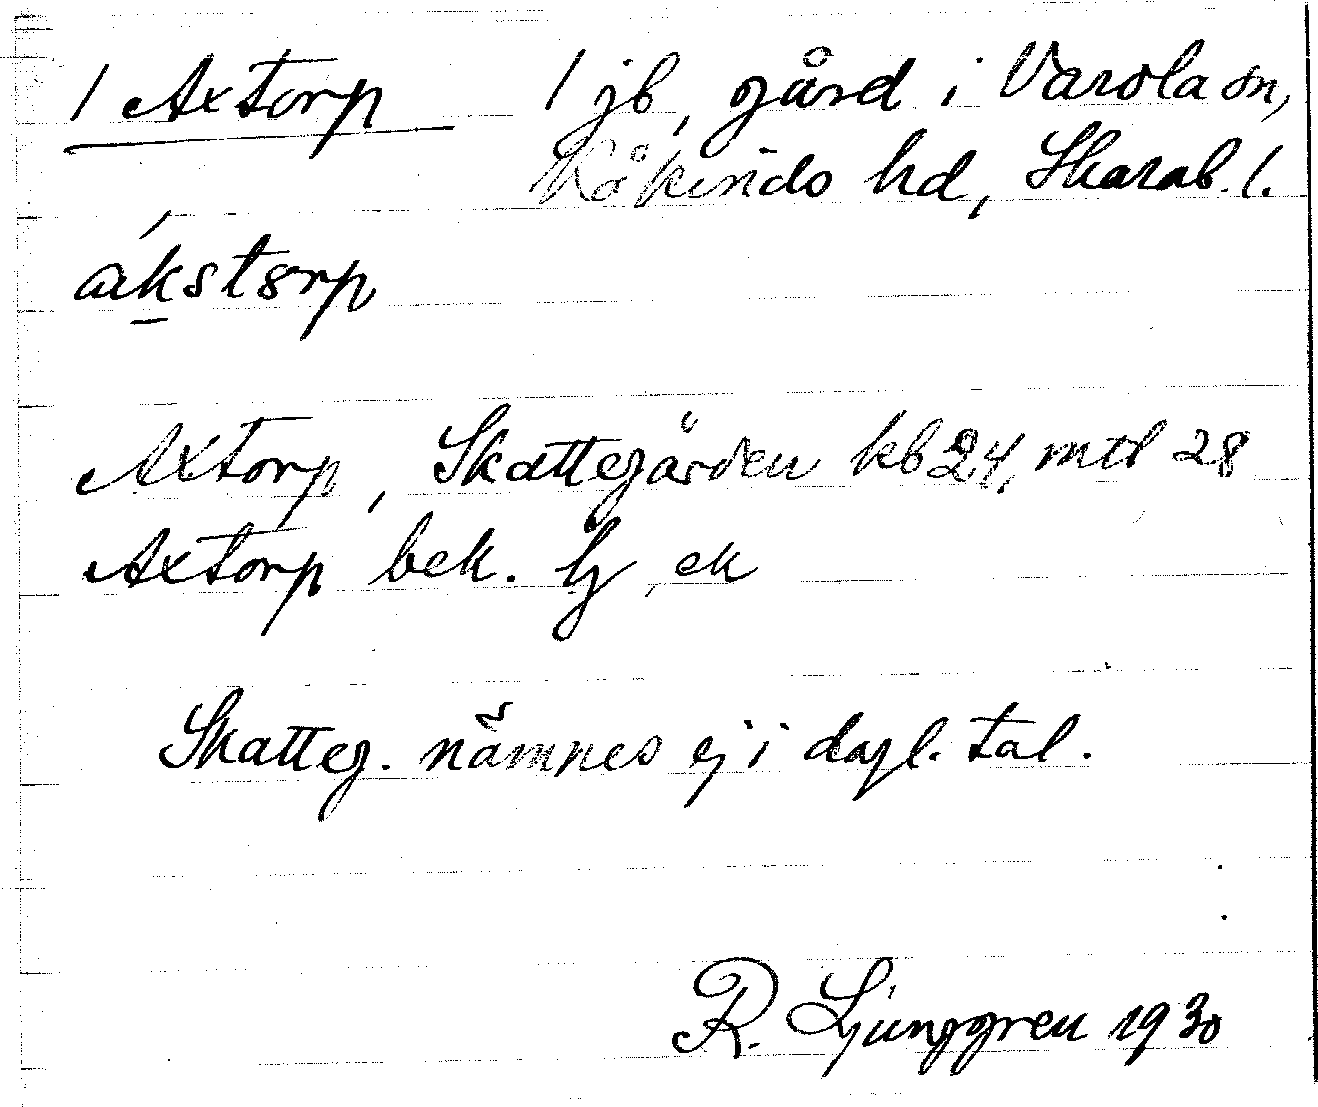 1 Axtorp 1 jb, gård i Varola sn,
Kåkinds hd, Skarab. l.
ákstorp
Axtorp, Skattegården kb 24, mtl 28
Axtorp bek. hj, ek
Skatteg. nämnes ej i dagl. tal.
R. Ljunggren 1930